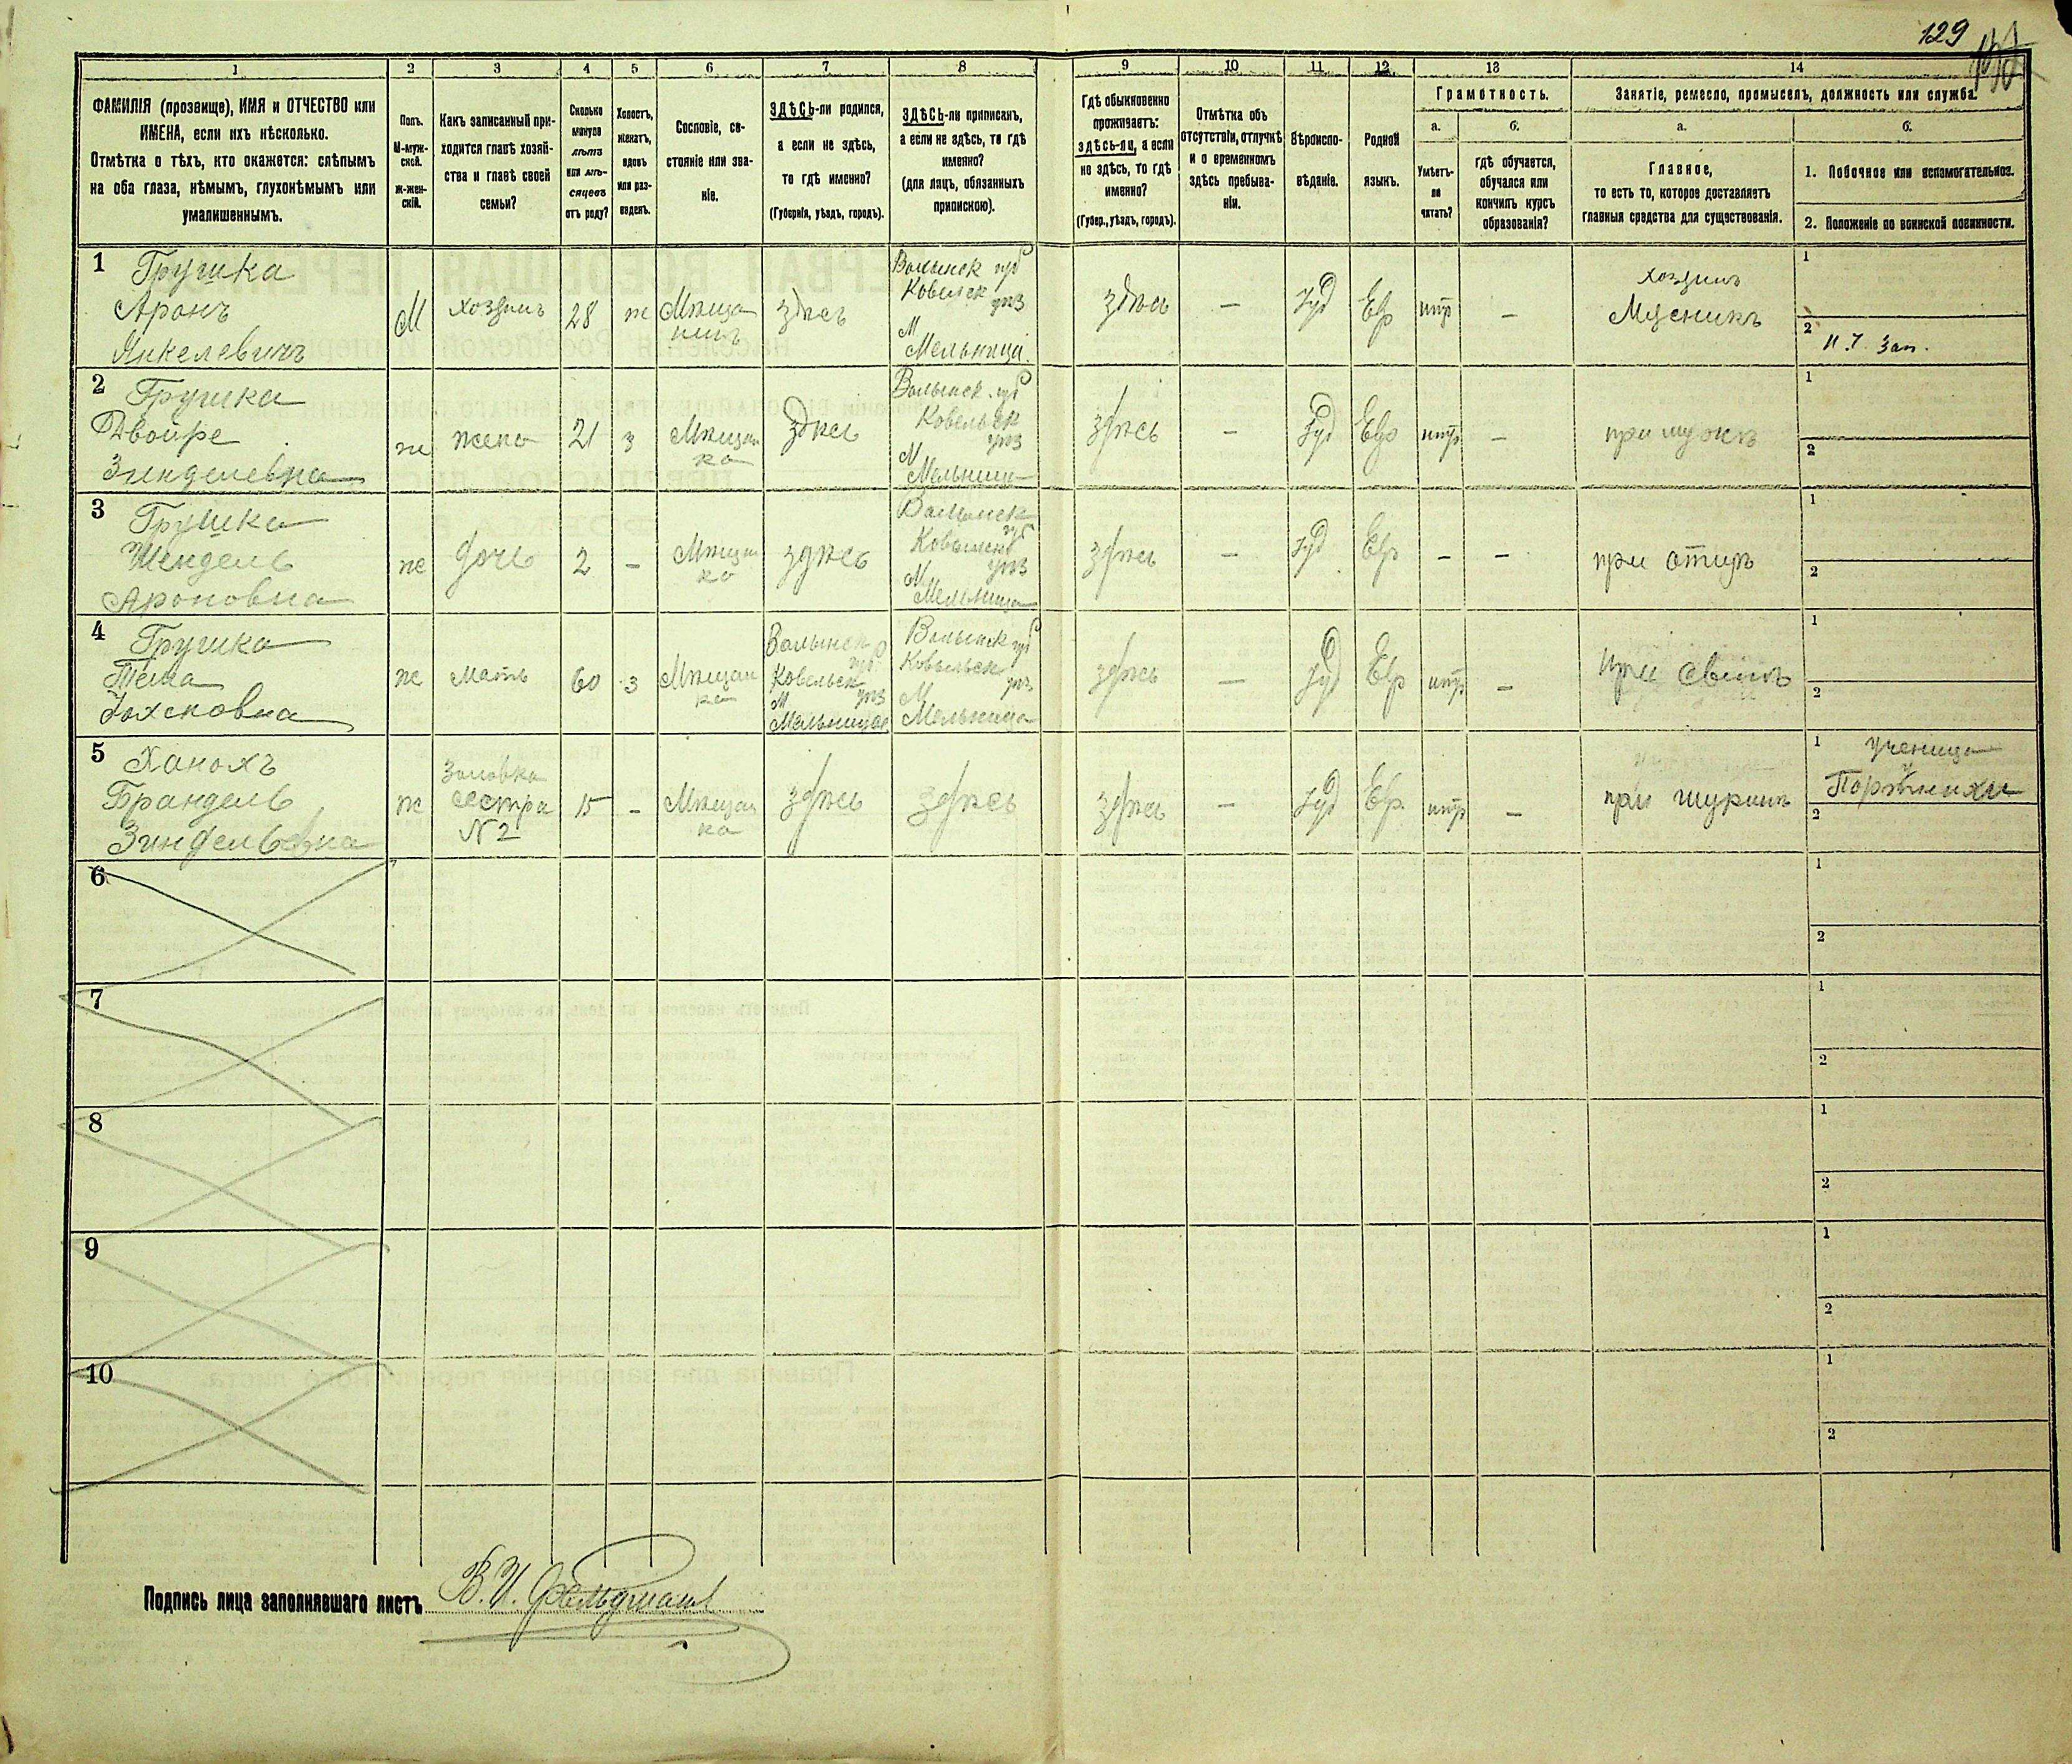 129
1
2
3
4
5
6
7
8
9
10
11
12
13
14
ФАМИЛІЯ (прозвище), ИМЯ и ОТЧЕСТВО или
ИМЕНА, если ихъ нѣсколько.
Отмѣтка о тѣхъ, кто окажется: слѣпымъ
на оба глаза, нѣмымъ, глухонѣмымъ или
умалишеннымъ.
Полъ.
М-муж-
ской.
Ж-жен-
скій.
Какъ записанный при-
ходится главѣ хозяй-
ства и главѣ своей
семьи?
Сколько
минуло
лѣтъ
или мѣ-
сяцевъ
отъ роду?
Холостъ,
женатъ,
вдовъ
или раз-
веденъ.
Сословіе, со-
стояніе или зва-
ніе.
ЗДѢСЬ-ли родился,
а если не здѣсь,
то гдѣ именно?
(Губернія, уѣздъ, городъ).
ЗДѢСЬ-ли приписанъ,
а если не здѣсь, то гдѣ
именно?
(для лицъ, обязанныхъ
припискою).
Гдѣ обыкновенно
проживаетъ:
здѣсь-ли, а если
не здѣсь, то гдѣ
именно?
(Губер., уѣздъ, городъ).
Отмѣтка объ
отсутствіи, отлучкѣ
и о временномъ
здѣсь пребыва-
ніи.
Вѣроиспо-
вѣданіе.
Родной
языкъ.
Грамотность.
а.
Умѣетъ-
ли
читать?
б.
гдѣ обучается,
обучался или
кончилъ курсъ
образованія?
Занятіе, ремесло, промыселъ, должность или служба.
а.
Главное,
то есть то, которое доставляетъ
главныя средства для существованія.
б.
1. Побочное или вспомогательное.
2. Положеніе по воинской повинности.
1
Грушка
Аронъ
Янкелевичъ
М
хозяинъ
28
ж
Мѣща
нинъ
здѣсь
Волынск губ
Ковельск уѣз
М
Мельница
здѣсь
—
Іуд
Евр
—
хозяинъ
Мясникъ
1
2
2
Грушка
Двойре
Зинделевна
ж
жена
21
з
Мѣщан
ка
здѣсь
Волынск губ
Ковельск
уѣз
М
Мельница
здѣсь
—
Іуд
Евр
—
при мужѣ
1
2
3
Грушка
Шендель
Ароновна
ж
дочь
2
—
Мѣщан
ка
здѣсь
Волынск
губ
Ковельск
уѣз
М
Мельница
здѣсь
—
Іуд
Евр
—
—
при отцѣ
1
2
4
Грушка
ж
Мать
60
з
Мѣщан
ка
Волынск
губ
Ковельск
уѣз
М
Мельница
Волынск губ
Ковельск
уѣз
М
Мельница
здѣсь
—
Іуд
Евр
—
при
1
2
5
Ханохъ
Брандель
Зиндельевна
ж
Золовка
сестра
№ 2
15
—
Мѣщан
ка
здѣсь
здѣсь
здѣсь
—
Іуд
Евр
—
при шуринѣ
1
ученица
у
Портнихи
2
6
1
2
7
1
2
8
1
2
9
1
2
10
1
2
Подпись лица заполнявшаго листъ
В. И. Фельдманъ